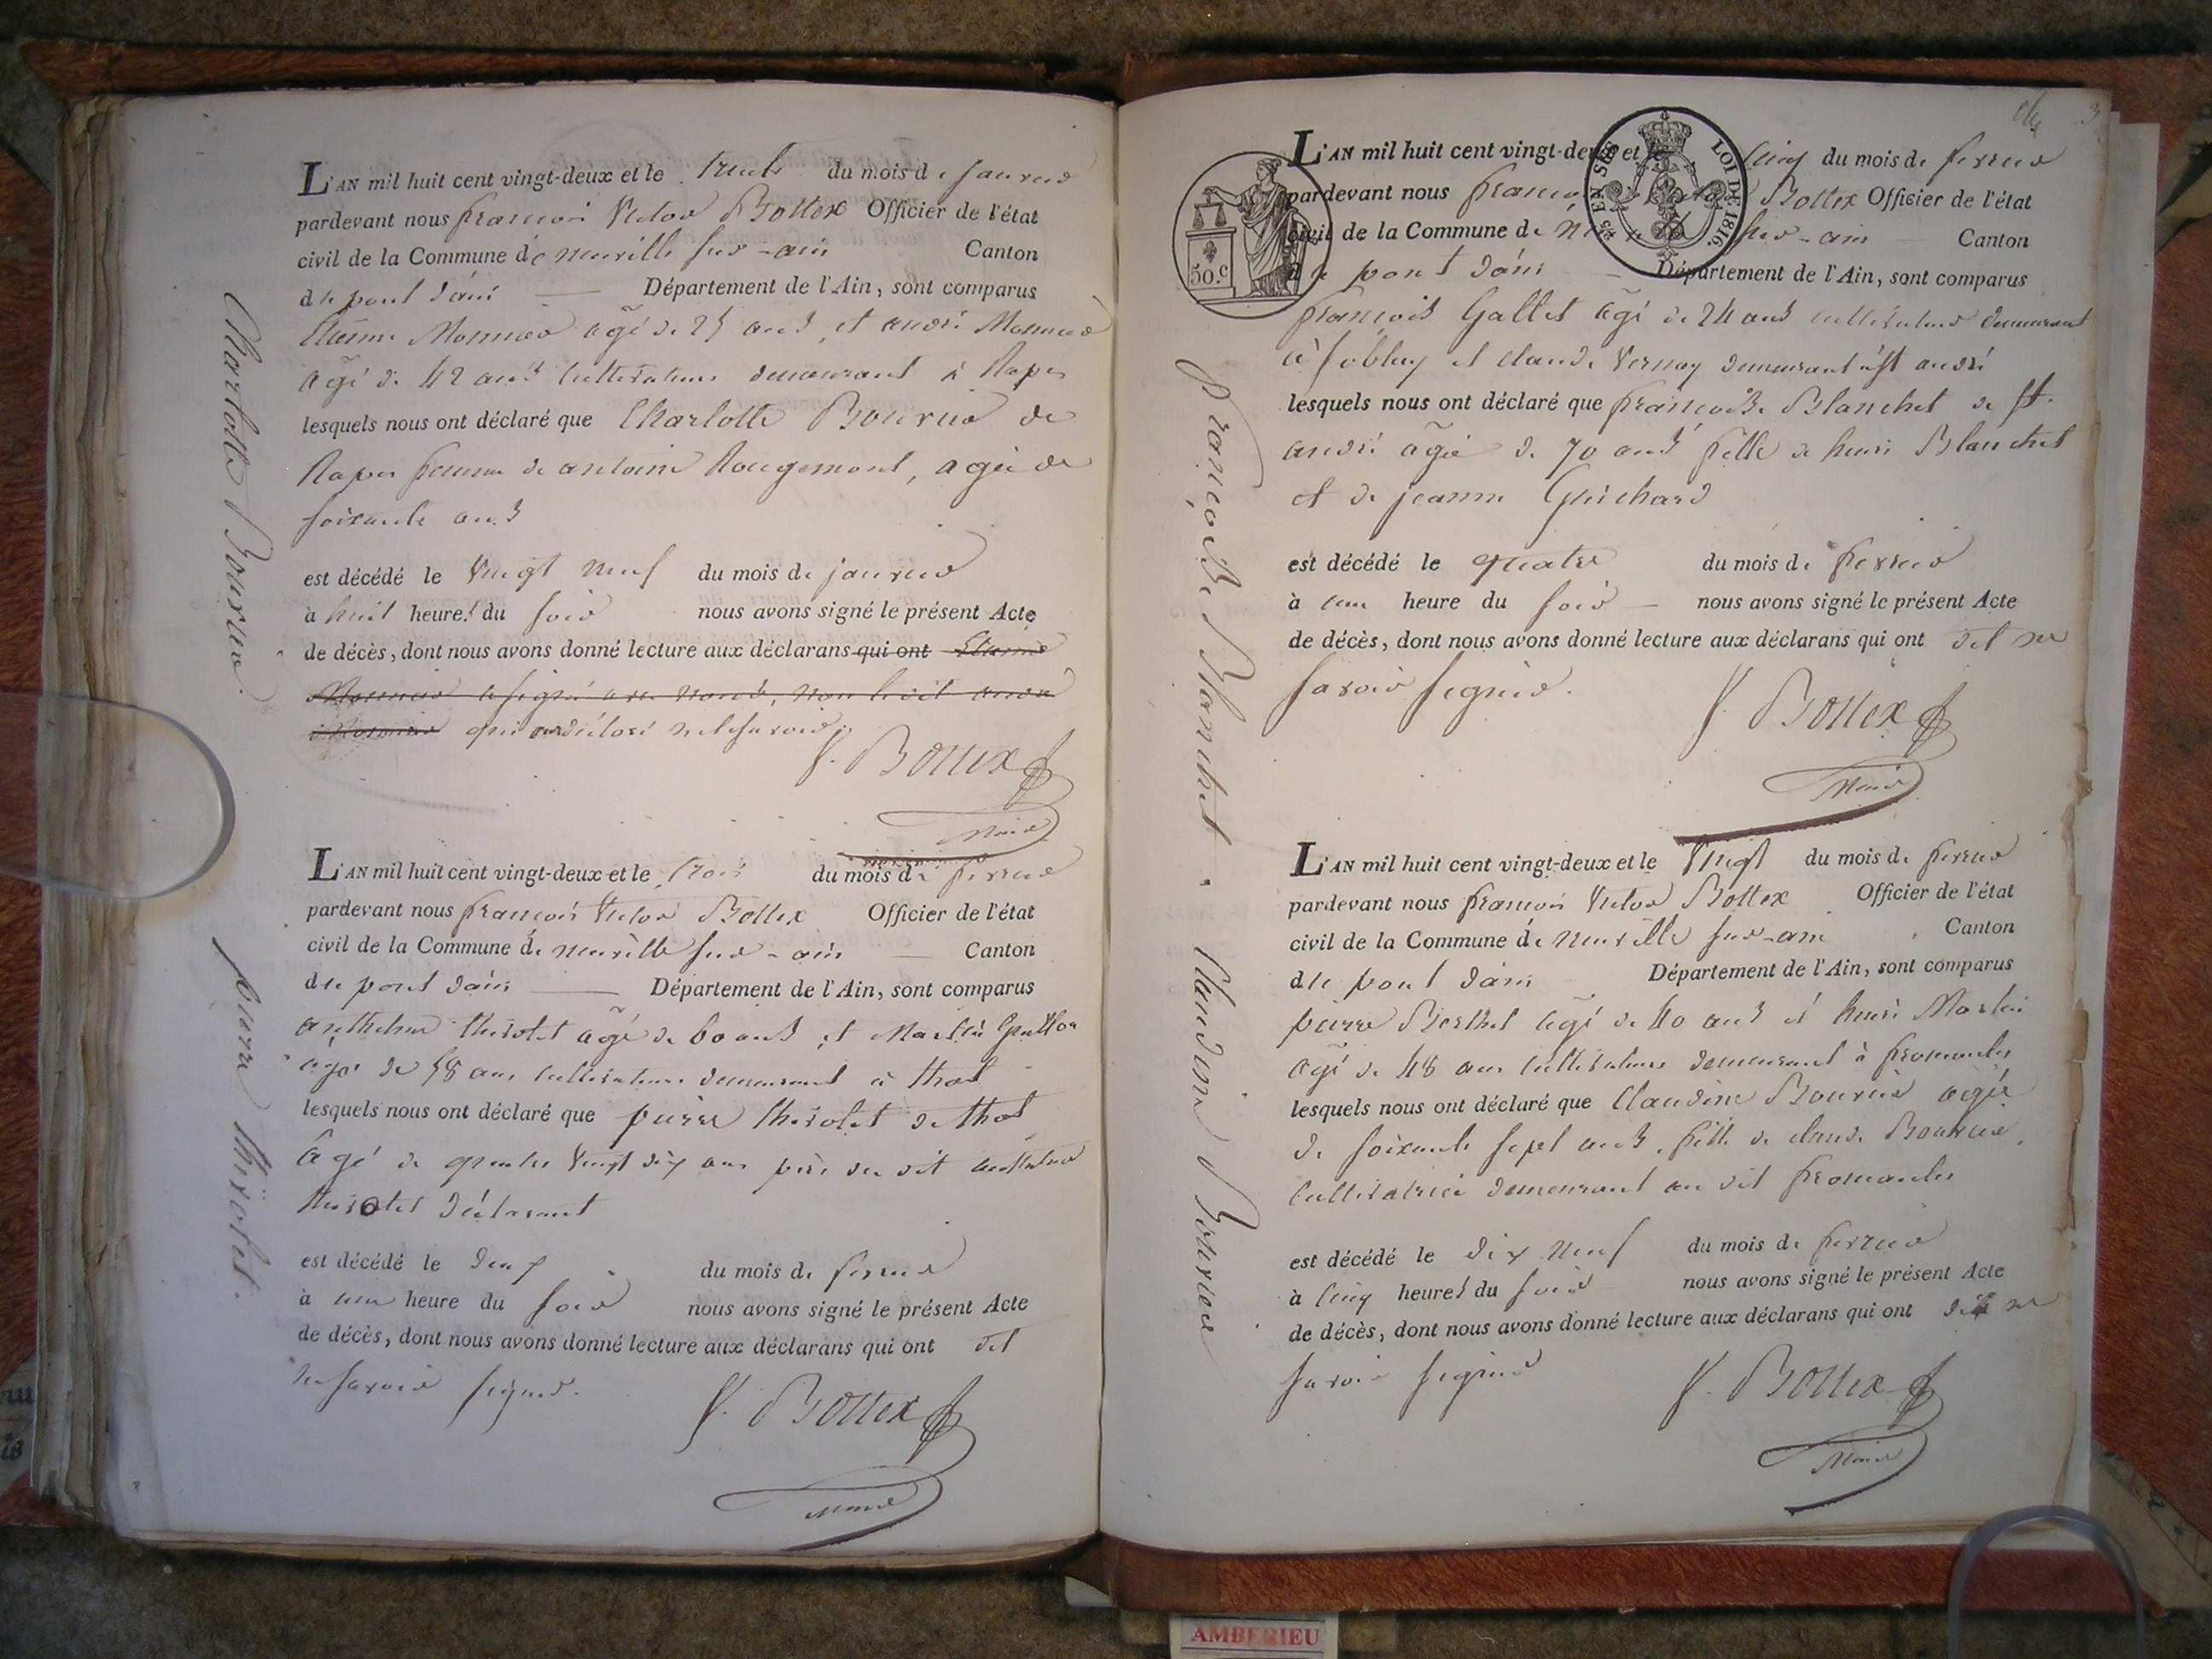 L'AN mil huit cent vingt-deux et le trente du mois de janvier
pardevant nous françois Victor Bottex Officier de l'état
civil de la Commune de neuville sur-ain Canton
de pont dain Département de l'Ain, sont comparus
Etienne Monnier agé de 25 ans, et andré Monnier
agé de 42 ans cultivateurs demeurant à Rapes
lesquels nous ont déclaré que Charlotte Bouvier de
Rapes femme de antoine Rougemont, agée de
soixante ans
est décédé le Vingt neuf du mois de janvier
à huit heures du soir nous avons signé le présent Acte
de décès, dont nous avons donné lecture aux déclarans qui ont Etienne
Monnier a signé avec nous, non ledit andré
Monnier qui ont déclaré ne le savoir
V. Bottex
Maire
Charlotte Bouvier.
L'AN mil huit cent vingt-deux et le trois du mois de fevrier
pardevant nous françois Victor Bottex Officier de l'état
civil de la Commune de neuville sur-ain Canton
de pont dain Département de l'Ain, sont comparus
anthelme thivolet agé de 60 ans, et Guillon
agé de 58 ans cultivateurs demeurant à thol
lesquels nous ont déclaré que pierre thivolet de thol
agé de quatre vingt dix ans père du dit anthelme
thivolet déclarant
est décédé le deux du mois de fevrier
à une heure du soir nous avons signé le présent Acte
de décès, dont nous avons donné lecture aux déclarans qui ont dit
ne savoir signer.
V. Bottex
Maire
pierre thivolet.
3
50.c
25 EN SUS
LOI DE 1816.
L'AN mil huit cent vingt-deux et le cinq du mois de fevrier
pardevant nous françois Victor Bottex Officier de l'état
civil de la Commune de neuville sur-ain Canton
de pont dain Département de l'Ain, sont comparus
françois Gallet agé de 24 ans cultivateur demeurant
à soblay et claude Vernay demeurant à st andré
lesquels nous ont déclaré que françoise Blanchet de st.
andré agée de 70 ans fille de henri Blanchet
et de jeanne Guichard
est décédé le quatre du mois de fevrier
à une heure du soir nous avons signé le présent Acte
de décès, dont nous avons donné lecture aux déclarans qui ont dit ne
savoir signer.
V. Bottex
Maire
françoise Blanchet.
L'AN mil huit cent vingt-deux et le Vingt du mois de fevrier
pardevant nous françois Victor Bottex Officier de l'état
civil de la Commune de neuville sur-ain Canton
de pont dain Département de l'Ain, sont comparus
pierre Berthet agé de 40 ans et henri Martin
agé de 48 ans cultivateurs demeurant à fromentes
lesquels nous ont déclaré que Claudine Bouvier agée
de soixante sept ans, fille de claude Bouvier,
cultivatrice demeurant au dit fromentes
est décédé le dix neuf du mois de fevrier
à cinq heures du soir nous avons signé le présent Acte
de décès, dont nous avons donné lecture aux déclarans qui ont dit ne
savoir signer
V. Bottex
Maire
Claudine Bouvier
AMBERIEU